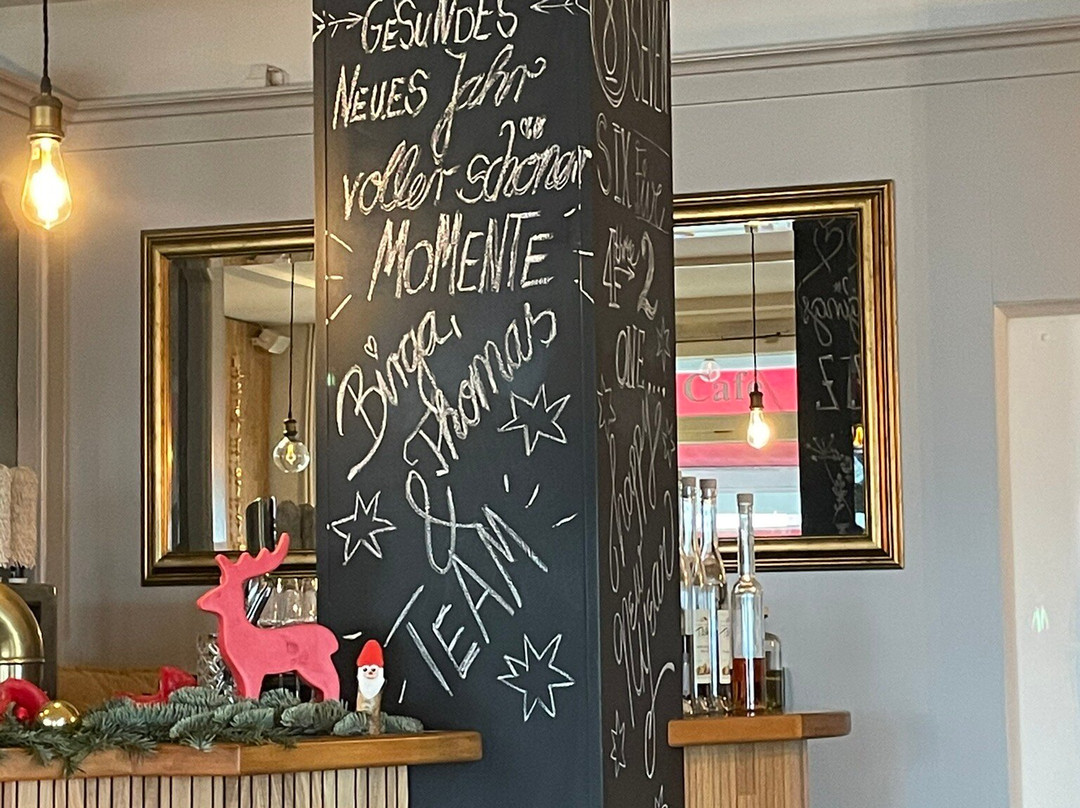 GESUNDES
NEUES Jahr
voller schöner
MOMENTE
Birga,
Thomas
&
TEAM
SIX Five
4 three 2
ONE....
happy
new
Year
Café